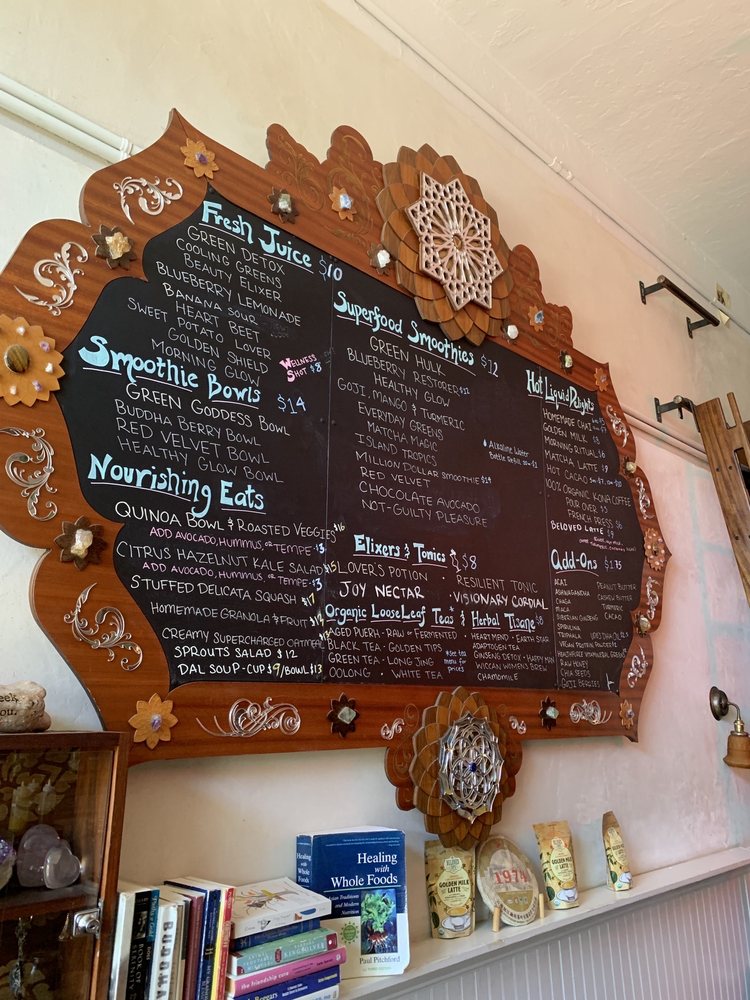 Fresh Juice $10
GREEN DETOX
COOLING GREENS
BEAUTY ELIXER
BLUEBERRY LEMONADE
BANANA SOUR
HEART BEET
SWEET POTATO LOVER
GOLDEN SHIELD
MORNING GLOW
WELLNESS
SHOT $8
Smoothie Bowls $14
GREEN GODDESS BOWL
BUDDHA BERRY BOWL
RED VELVET BOWL
HEALTHY GLOW BOWL
Nourishing Eats
QUINOA BOWL & ROASTED VEGGIES $16
ADD AVOCADO, HUMMUS, OR TEMPE $3
CITRUS HAZELNUT KALE SALAD $15
ADD AVOCADO, HUMMUS, OR TEMPE $3
STUFFED DELICATA SQUASH $17
HOMEMADE GRANOLA & FRUIT
CREAMY SUPERCHARGED OATMEAL
SPROUTS SALAD $12
DAL SOUP - CUP $9/BOWL $13
Superfood Smoothies $12
GREEN HULK
BLUEBERRY RESTORER $12
HEALTHY GLOW
GOJI, MANGO & TURMERIC
EVERYDAY GREENS
MATCHA MAGIC
ISLAND TROPICS
MILLION DOLLAR SMOOTHIE $14
RED VELVET
CHOCOLATE AVOCADO
NOT-GUILTY PLEASURE
Alkaline Water
Bottle Refill
Elixers & Tonics $8
LOVER'S POTION · RESILIENT TONIC
JOY NECTAR · VISIONARY CORDIAL
Organic Loose Leaf Teas & Herbal Tisane
AGED PUERH - RAW or FERMENTED
BLACK TEA - GOLDEN TIPS
GREEN TEA - LONG JING
OOLONG · WHITE TEA
*see tea
menu for
prices
HEARTMEND · EARTH STAR
ADAPTOGEN TEA
GINSENG DETOX · HAPPY MOM
WICCAN WOMEN'S BREW
CHAMOMILE
Hot Liquid Delights
HOMEMADE CHAI
GOLDEN MILK
MORNING RITUAL
MATCHA LATTE
HOT CACAO
100% ORGANIC KONA COFFEE
POUR OVER $5
FRENCH PRESS $6
BELOVED LATTE
Add-Ons $1.75
ACAI
ASHWAGANDHA
CHAGA
MACA
SIBERIAN GINSENG
SPIRULINA
TRIPHALA
VEGAN PROTEIN POWDER
RAW HONEY
CHIA SEEDS
GOJI BERRIES
PEANUT BUTTER
CASHEW BUTTER
TURMERIC
CACAO
UDO'S DHA OIL
Healing
with
Whole Foods
Asian Traditions and
Modern Nutrition
Paul Pitchford
BUDDHA
the friendship cure
GOLDEN
MILK
1974
GOLDEN MILK
LATTE